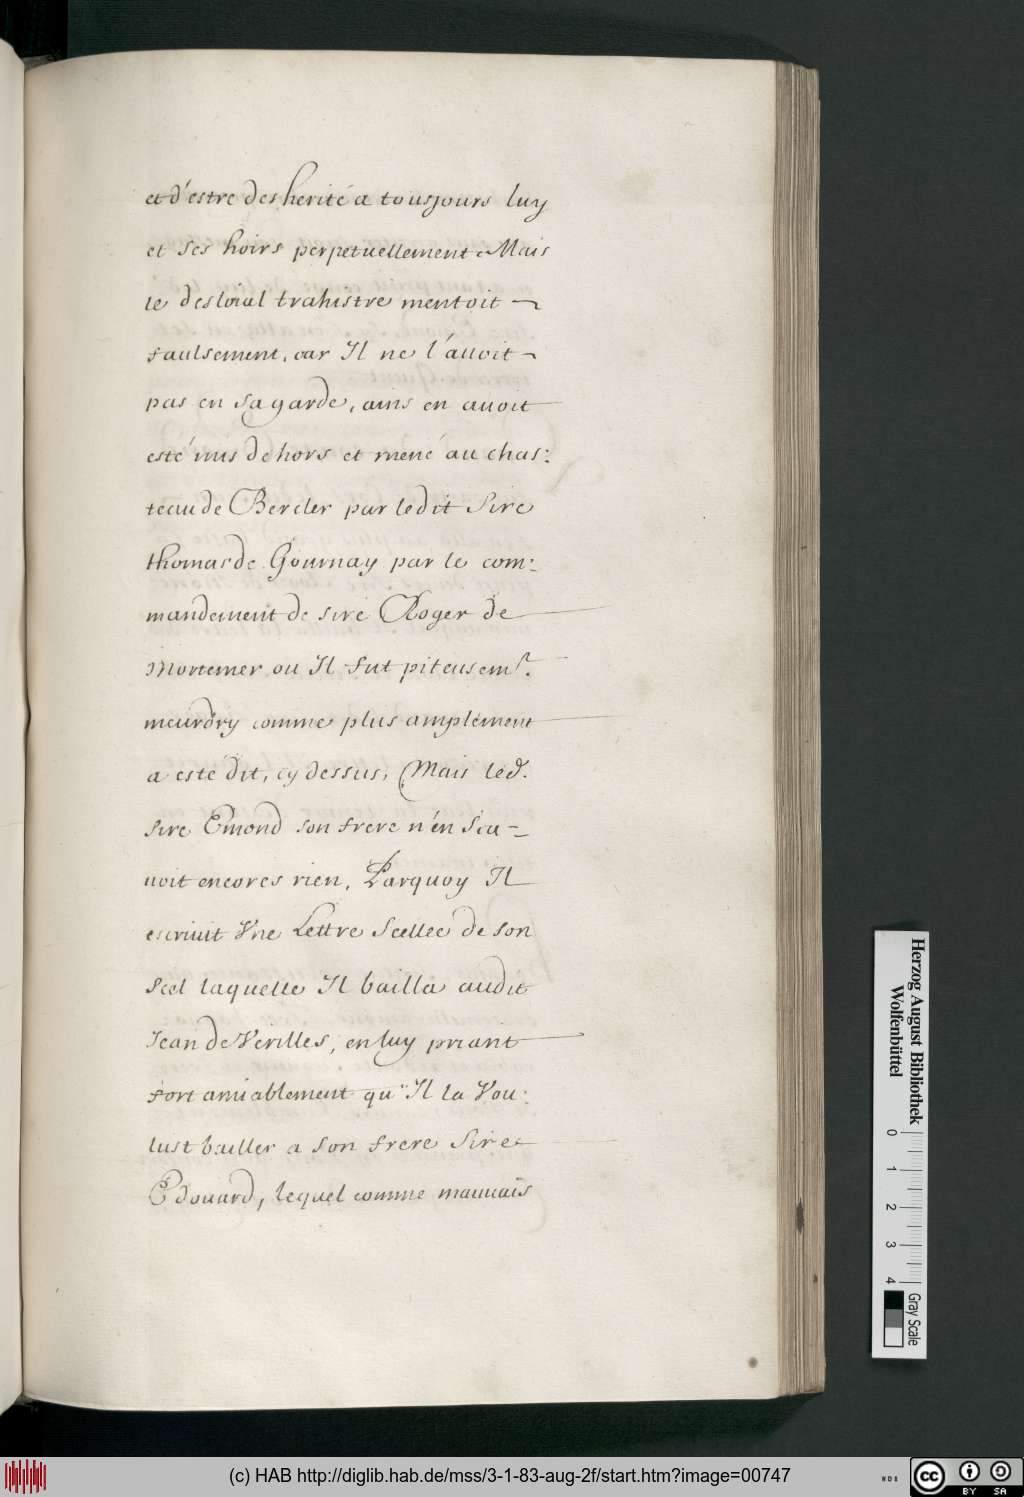 et d'estre desherité a tousjours luy
et ses hoirs perpetuellement. Mais
le desloial trahistre mentoit
faulsement, car Il ne l'auoit
pas en sa garde, ains en auoit
esté mis dehors et mené au chas:
teau de Bercler par ledit Sire
thomas de Gournay par le com:
mandement de sire Roger de
Mortemer ou Il fut piteusemt.
meurdry comme plus amplement
a esté dit, cy dessus, Mais led.
sire Emond son frere n'en sca-
uoit encores rien, Parquoy Il
escriuit Vne Lettre Scellee de son
Scel laquelle Il bailla audit
Jean de Verilles, en luy priant
fort amiablement qu'Il la Vou:
lust bailler a son frere Sire
Edouard, lequel comme mauuais
Herzog August Bibliothek
Wolfenbüttel
0 1 2 3 4
Gray Scale
(c) HAB http://diglib.hab.de/mss/3-1-83-aug-2f/start.htm?image=00747
WDB
cc
BY SA